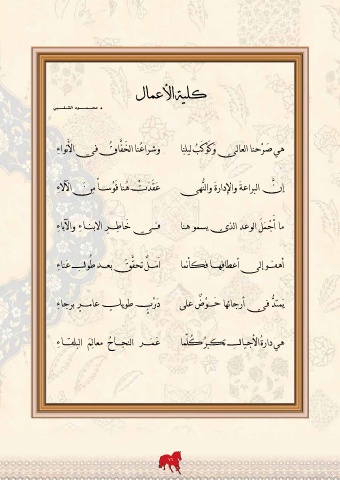 كلية الأعمال
د. محمـــود الشلبي
هي صَرْحنا العالي وكَوْكَبُ ليلِنا وشراعُنا الخَفَّاقُ في الأنواءِ
إنَّ البراعةَ والإدارةَ والنُّهى عَقَدَتْ هُنا قَوْساً مِنَ الآلاءِ
ما أجْمَلَ الوعدَ الذي يسمو هنا في خَاطِرِ الأبناءِ والآباءِ
أهفو إلى أعطافِها فكأنما أمَلٌ تحقَّقَ بعدَ طُولِ عَناءِ
يمتدُّ في أرجائها حَوْضٌ على دَرْبٍ طويلٍ عامرٍ برجاءِ
هي دارةُ الأجيالِ تكبرُ كُلَّما غَمَرَ النجاحُ معالِمَ البلقاءِ